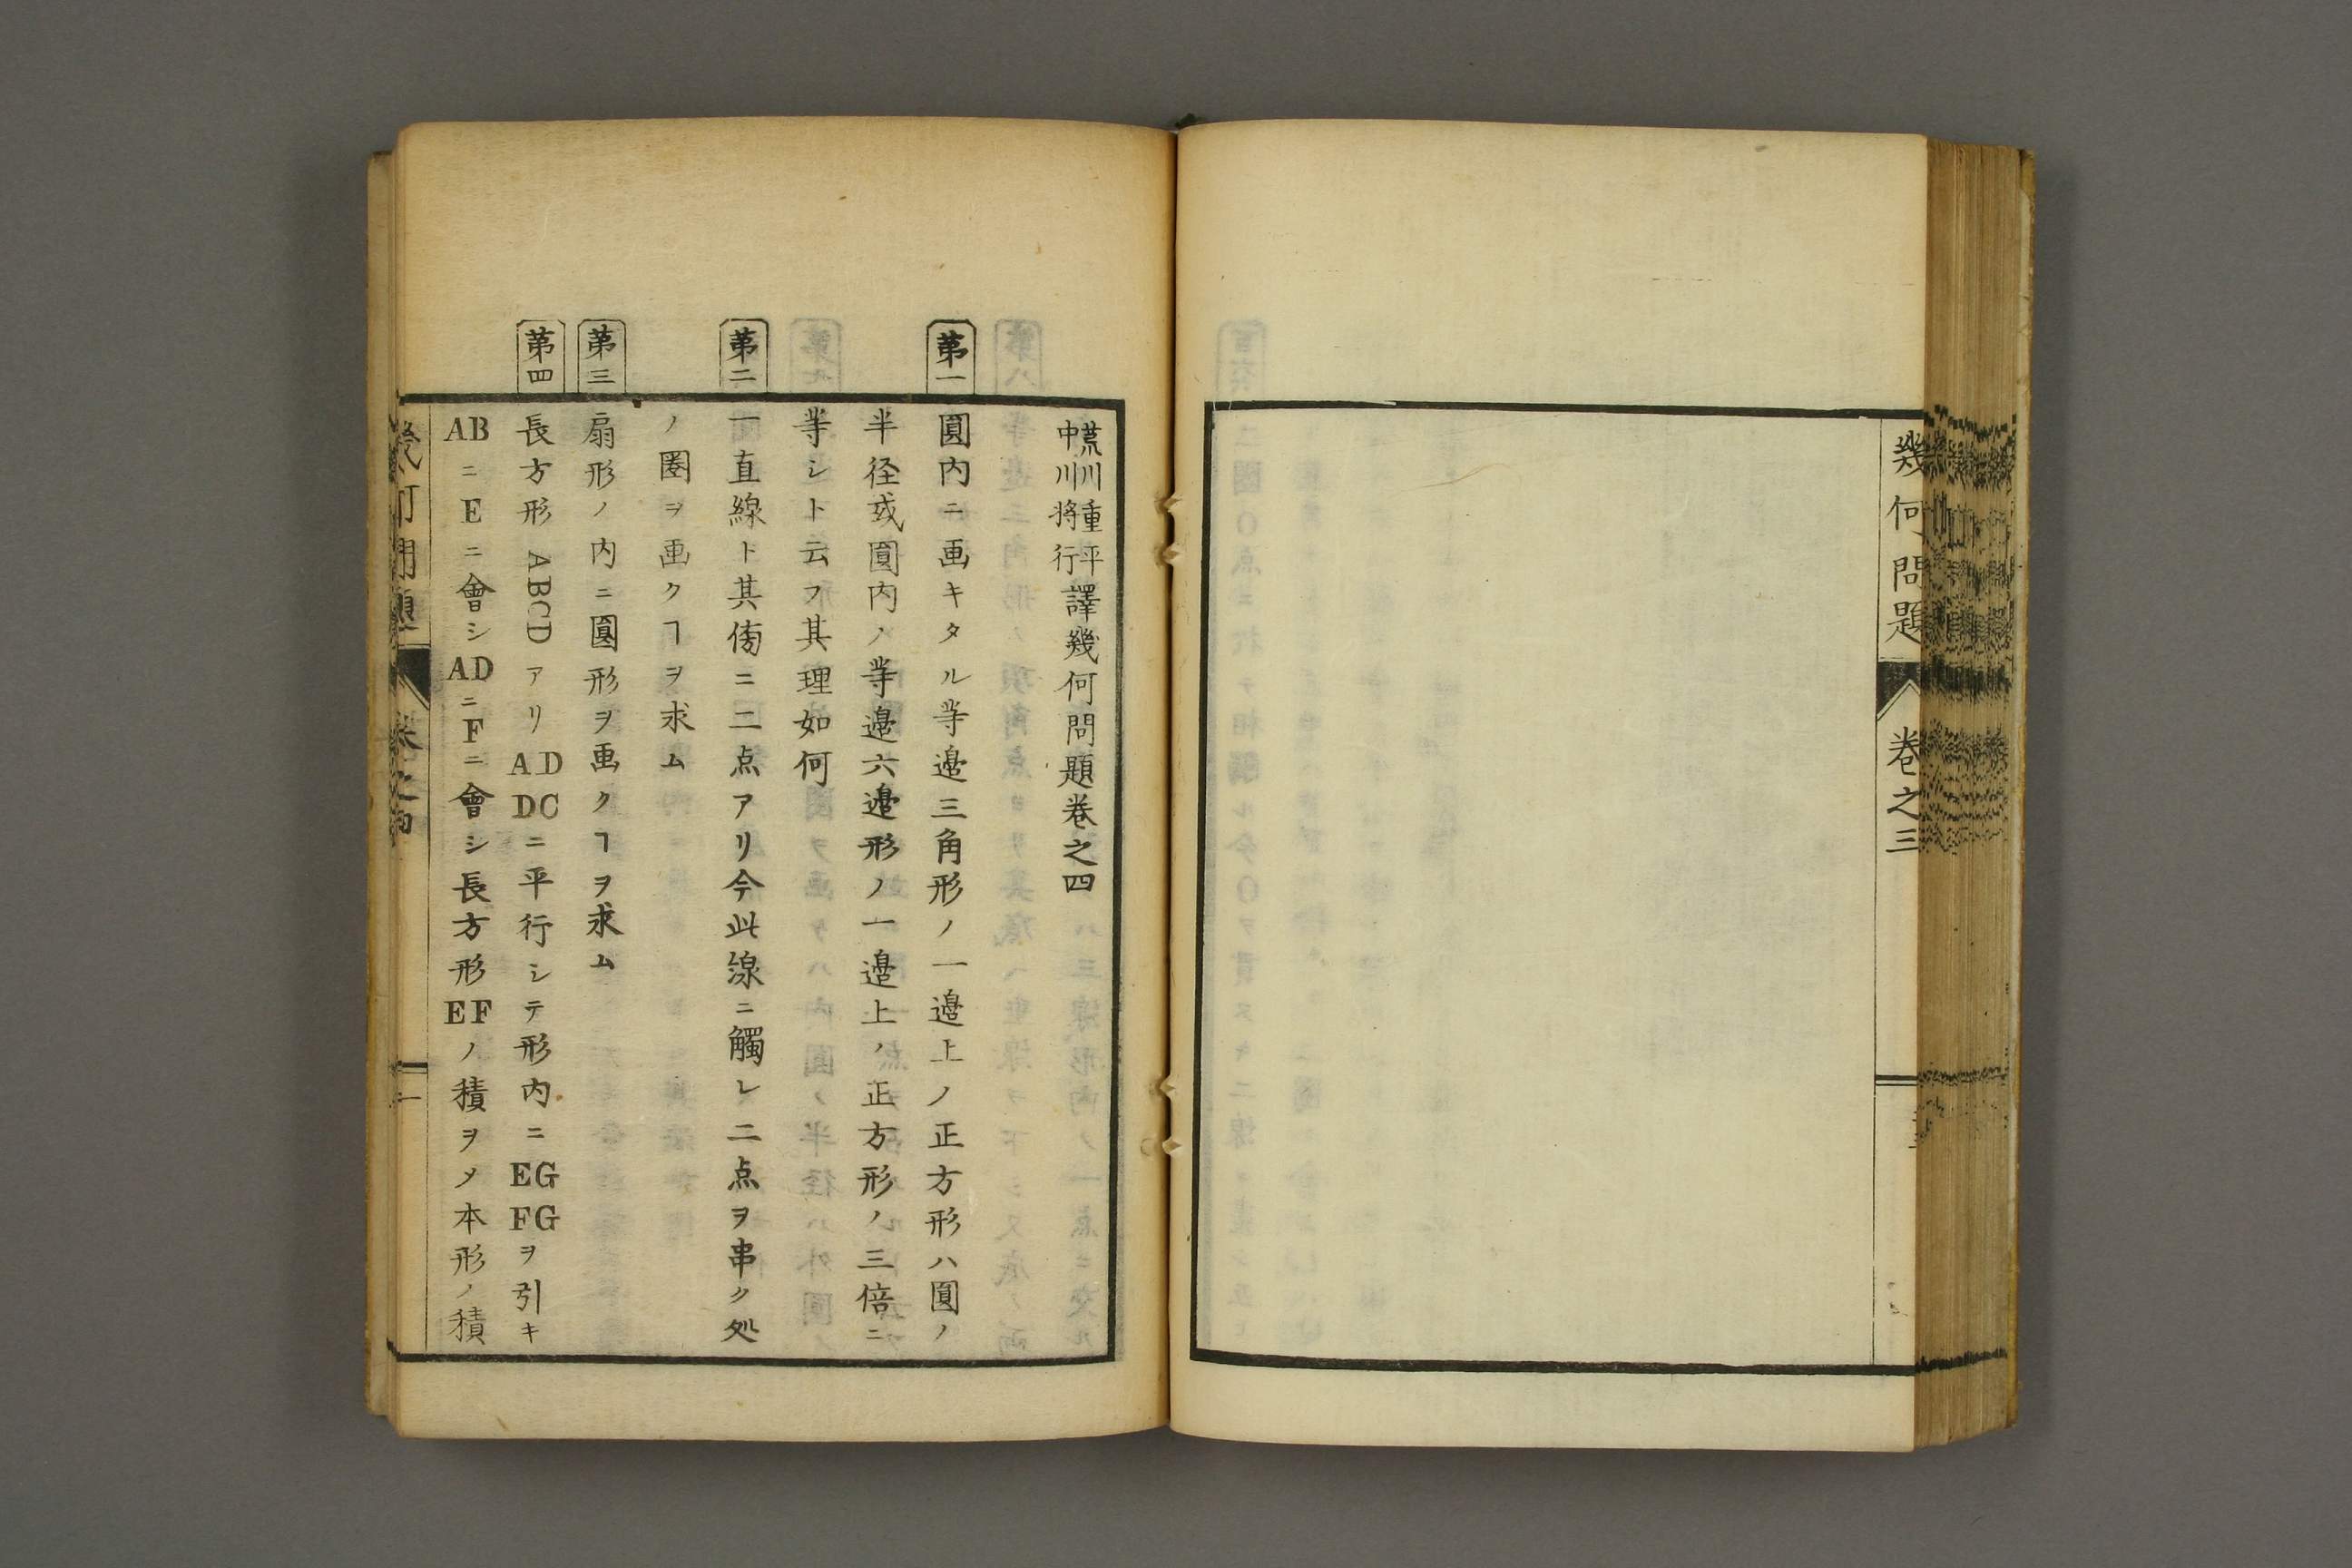 幾何問題
卷之三
荒川重平
中川将行
譯幾何問題卷之四
第一
圓内ニ画キタル等邉三角形ノ一邉上ノ正方形ハ圓ノ
半径或圓内ノ等邉六邉形ノ一邉上ノ正方形ノ三倍ニ
等シト云フ其理如何
第二
一直線ト其傍ニ二点アリ今此線ニ觸レ二点ヲ串ク処
ノ圏ヲ画クヿヲ求ム
第三
扇形ノ内ニ圓形ヲ画クヿヲ求ム
第四
長方形ABCDアリAD DCニ平行シテ形内ニEG FGヲ引キ
ABニEニ會シADニFニ會シ長方形EFノ積ヲ〆本形ノ積
幾何問題
卷之四
一